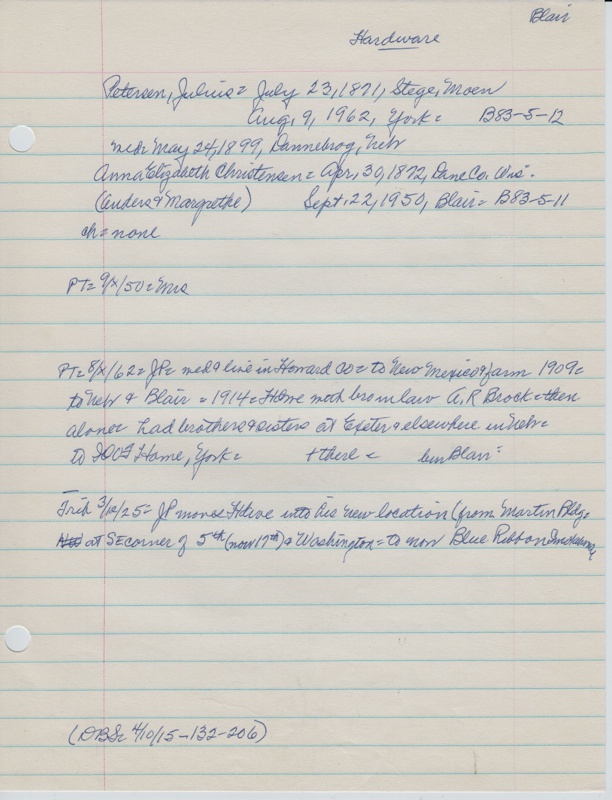 Blair
Hardware
Petersen, Julius = July 23, 1871, Stege, Moen
Aug. 9, 1962, York = B83-5-12
md = May 24, 1899, Dannebrog, Nebr
Anna Elizabeth Christensen = Apr. 30, 1872, Dane Co, Wis.
(Anders & Margrethe) Sept. 22, 1950, Blair = B83-5-11
ch = none
PT = 9/x/50 = Mrs
PT = 8/x/62 = JP = md & live in Howard Co = to New Mexico & farm 1909 =
to Nebr & Blair = 1914 = Hdwe with bro in law A. R Brock = then
alone = had brothers & sisters at Exeter & elsewhere in Nebr =
to IOOF Home, York = + there = bur Blair =
Trib 3/12/25 = JP moves Hdwe into his new location (from Martin Bldg.
at SE corner of 5th (now 17th) & Washington = to now Blue Ribbon
(DBS = 4/10/15-132-206)